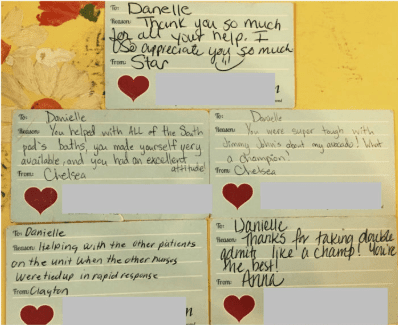 To: Danelle
Reason: Thank you so much
for all your help. I
appreciate you so much
From: Star
To: Danielle
Reason: You helped with ALL of the South
pod's baths, you made yourself very
available, and you had an excellent
attitude!
From: Chelsea
To: Danielle
Reason: You were super tough with
Jimmy John's about my avocado! What
a champion!
From: Chelsea
To: Danielle
Reason: Helping with the other patients
on the unit when the other nurses
were tied up in rapid response
From: Clayton
To: Danielle
Reason: Thanks for taking double
admits like a champ! You're
the best!
From: Anna